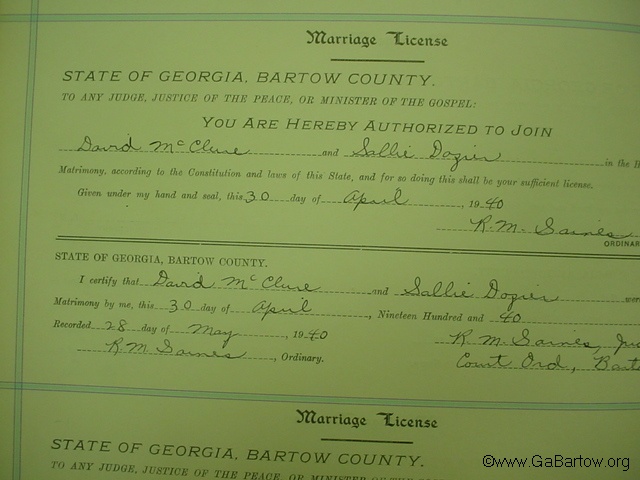 Marriage License
STATE OF GEORGIA, BARTOW COUNTY.
TO ANY JUDGE, JUSTICE OF THE PEACE, OR MINISTER OF THE GOSPEL:
YOU ARE HEREBY AUTHORIZED TO JOIN
David McClure and Sallie Dozier in the
Matrimony, according to the Constitution and laws of this State, and for so doing this shall be your sufficient license.
Given under my hand and seal, this 30 day of April, 1940
R. M. Gaines
ORDINAR
STATE OF GEORGIA, BARTOW COUNTY.
I certify that David McClure and Sallie Dozier wer
Matrimony by me, this 30 day of April, Nineteen Hundred and 40
Recorded 28 day of May, 1940 R. M. Gaines,
R M Gaines, Ordinary. Court Ord,
Marriage License
STATE OF GEORGIA, BARTOW COUNTY.
TO ANY JUDGE, JUSTICE OF THE PEACE, OR MINISTER OF THE
©www.GaBartow.org